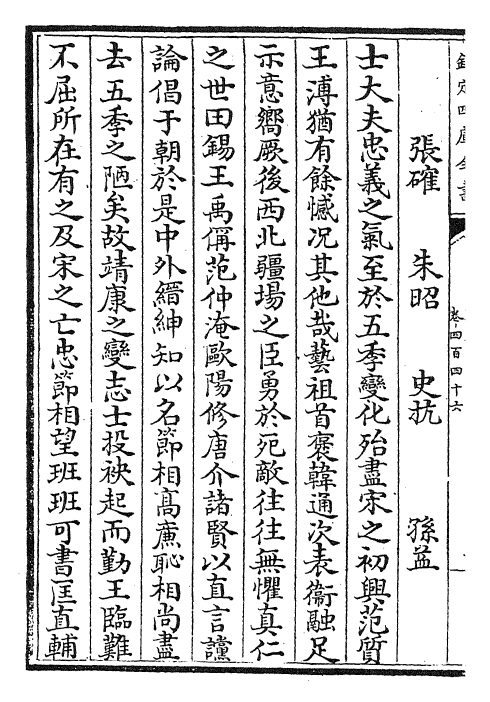 欽定四庫全書
卷四百四十六
張確　朱昭　史抗　孫益
士大夫忠義之氣至於五季變化殆盡宋之初興范質
王溥猶有餘憾况其他哉藝祖首褒韓通次表衞融足
示意嚮厥後西北疆埸之臣勇於死敵往往無懼真仁
之世田錫王禹偁范仲淹歐陽修唐介諸賢以直言讜
論倡于朝於是中外縉紳知以名節相髙亷恥相尚盡
去五季之陋矣故靖康之變志士投袂起而勤王臨難
不屈所在有之及宋之亡忠節相望班班可書匡直輔